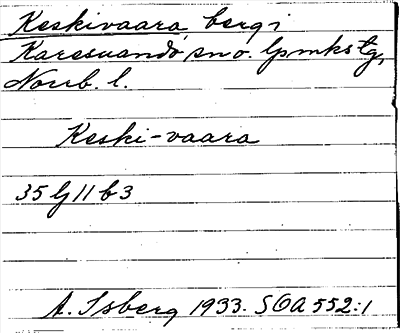 Keskivaara berg i
Karesuando sn o. lpmks tg,
Norrb. l.
Keski-vaara
35 lj 11 b 3
A. Isberg 1933. SOA 552:1